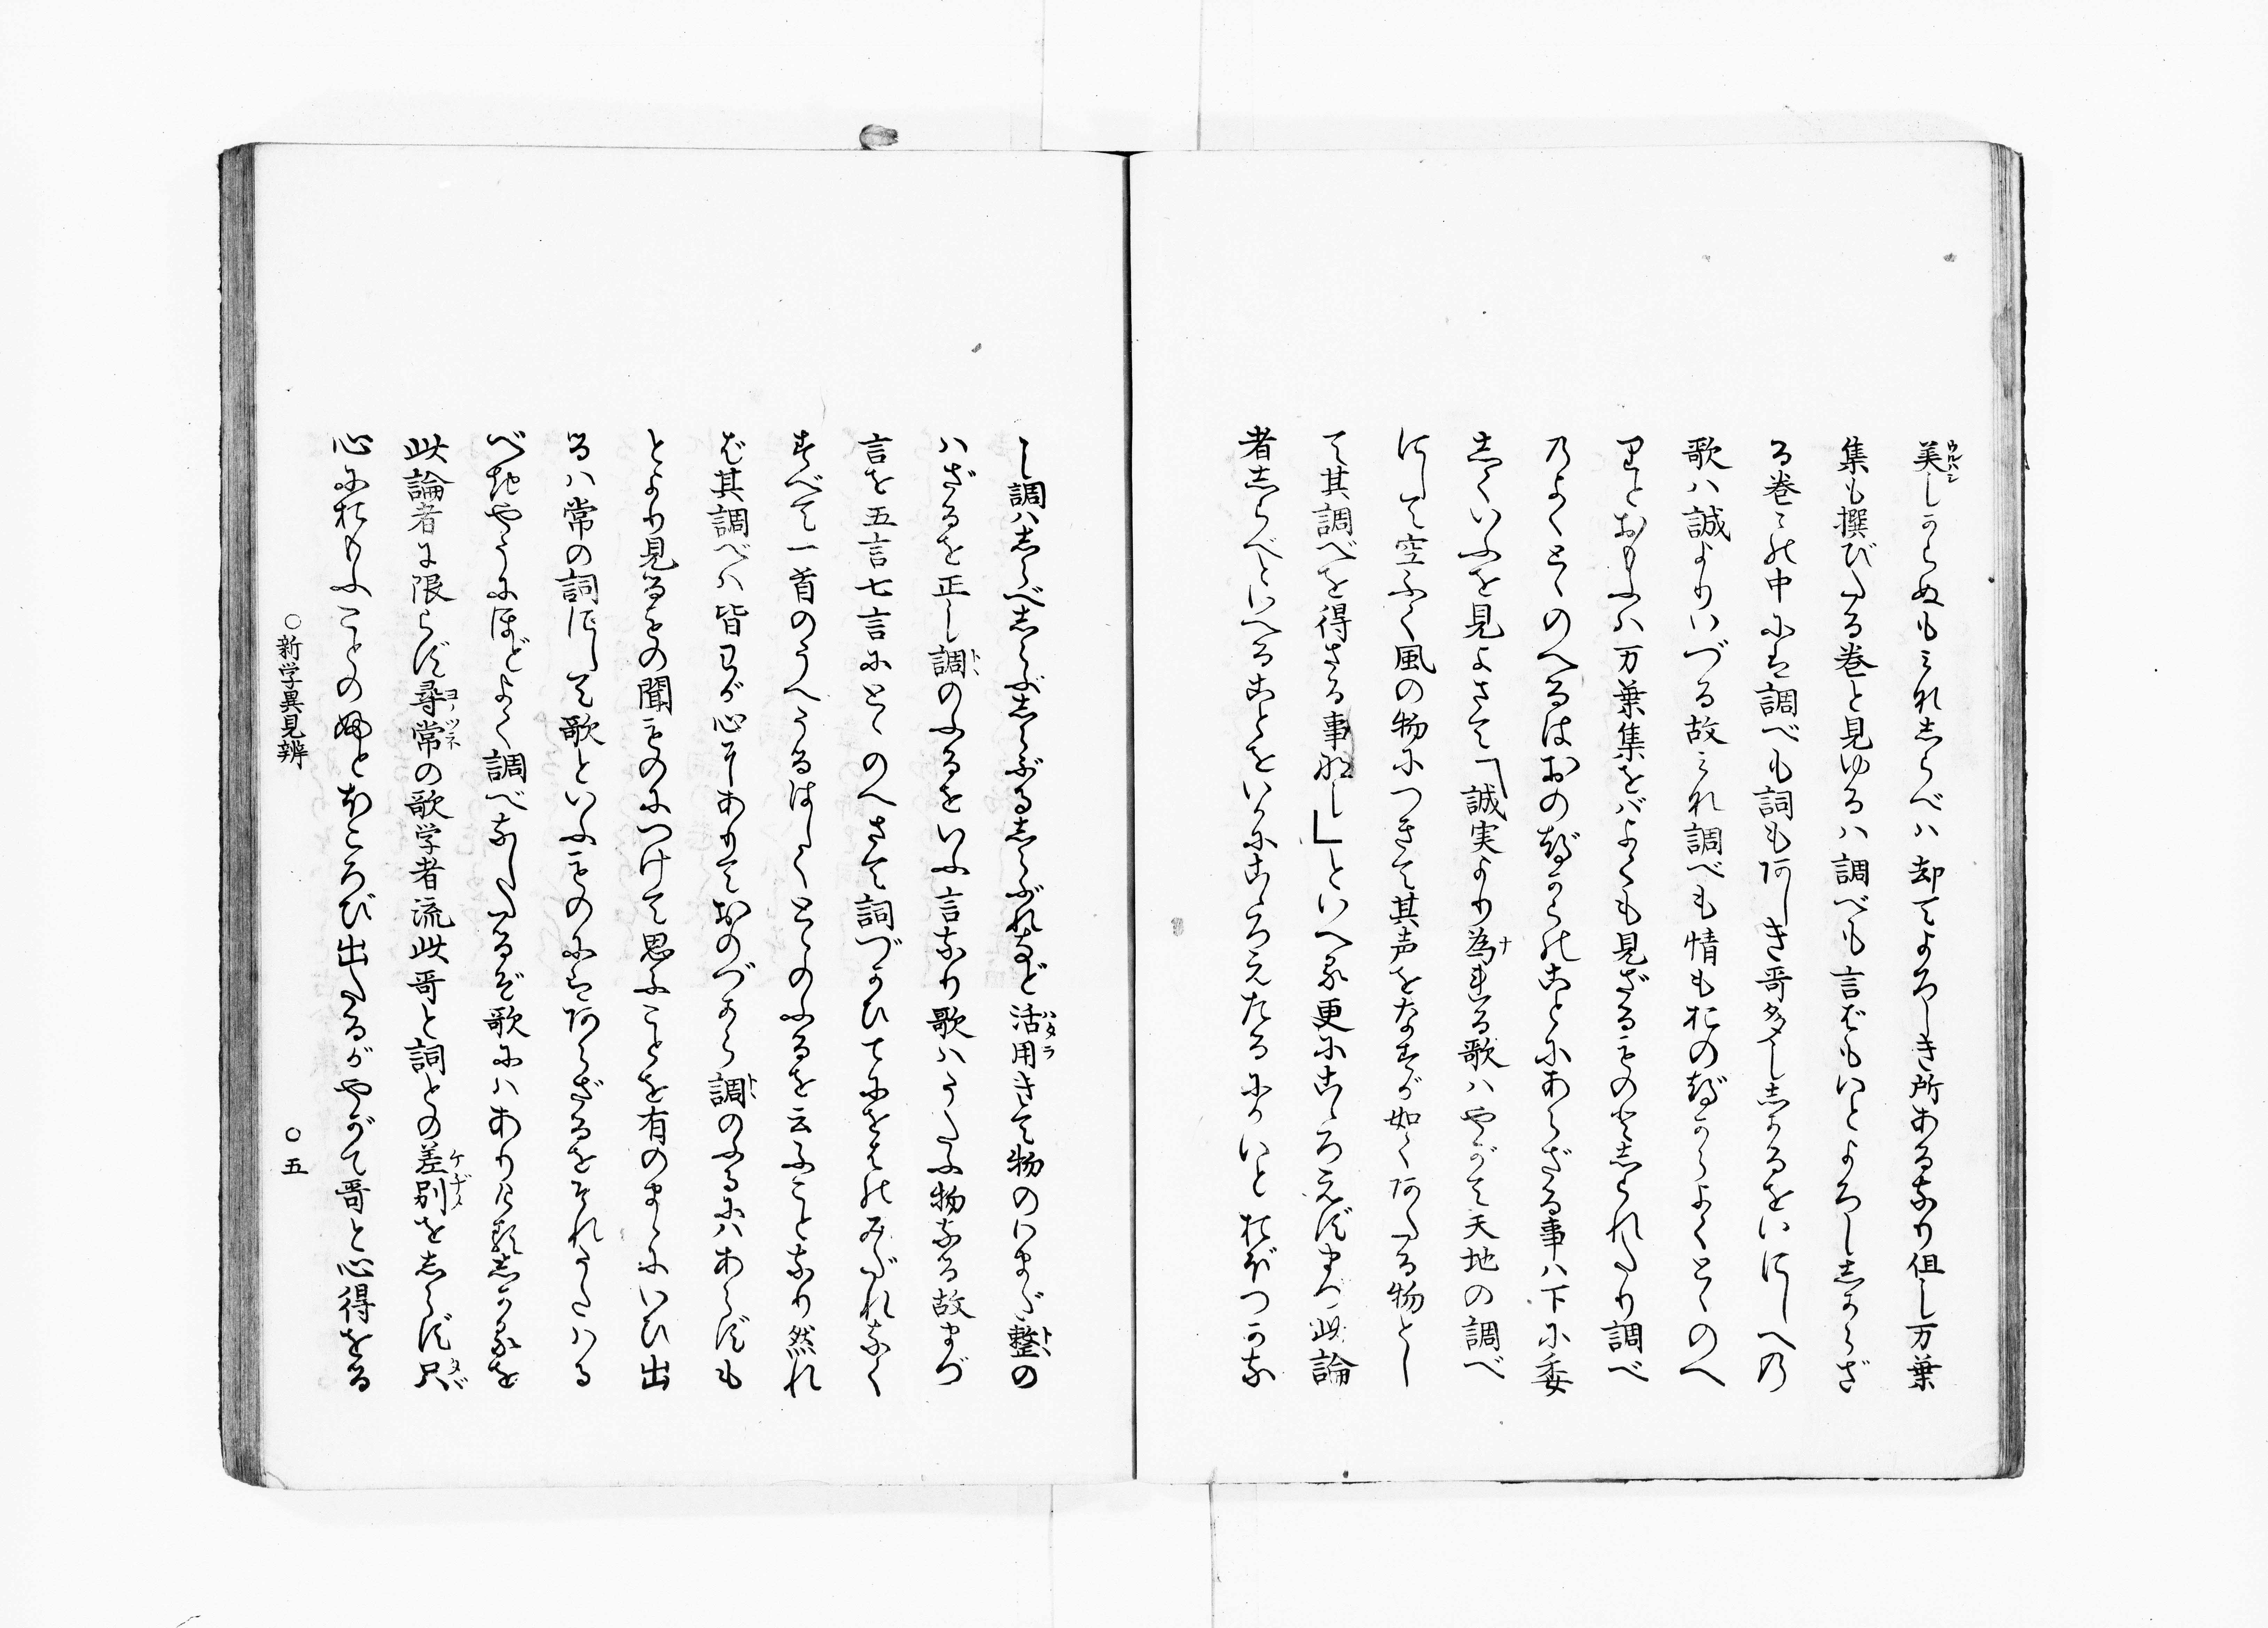 美しからぬもこれしらべハ却てよろしき所あるなり但し万葉
集も撰びたる巻と見ゆるハ調べも言ばもいとよろし志からざ
る巻々の中にハ調べも詞もあしき哥多し志かるをいにしへの
歌ハ誠よりいづる故これ調べも情もおのづからよくとゝのへ
りとおもふハ万葉集をバよくも見ざるものと志られたり調べ
のよくとゝのへるはおのづからのことにあらざる事ハ下に委
志くいふを見よさて「誠実より為れる歌ハやがて天地の調べ
にして空ふく風の物につきて其声をなすが如くあたる物とし
て其調べを得ざる事なし」といへる更にこゝろえずまづ此論
者志らべといへることをいかにこゝろえたるにかいとおぼつかな
し調ハ志らべ志らぶ志らぶる志らぶれなど活用きて物のいまだ整の
ハざるを正し調のふるをいふ言なり歌ハうたふ物なる故まづ
言を五言七言にとゝのへさて詞づかひてにをはのみだれなく
すべて一首のうへうるはしくとゝのふるを云ふことなり然れ
ば其調べハ皆わが心にありておのづから調のふるにハあらずも
とより見るもの聞ものにつけて思ふことを有のまゝにいひ出
るハ常の詞にして歌といふものにハあらざるをそれうたハる
べきやうにほどよく調べなしたるぞ歌にハありける志かるを
此論者に限らず尋常の歌学者流此哥と詞との差別を志らず只
心におもふことのふとほころび出たるがやがて哥と心得をる
○新学異見辨
○五